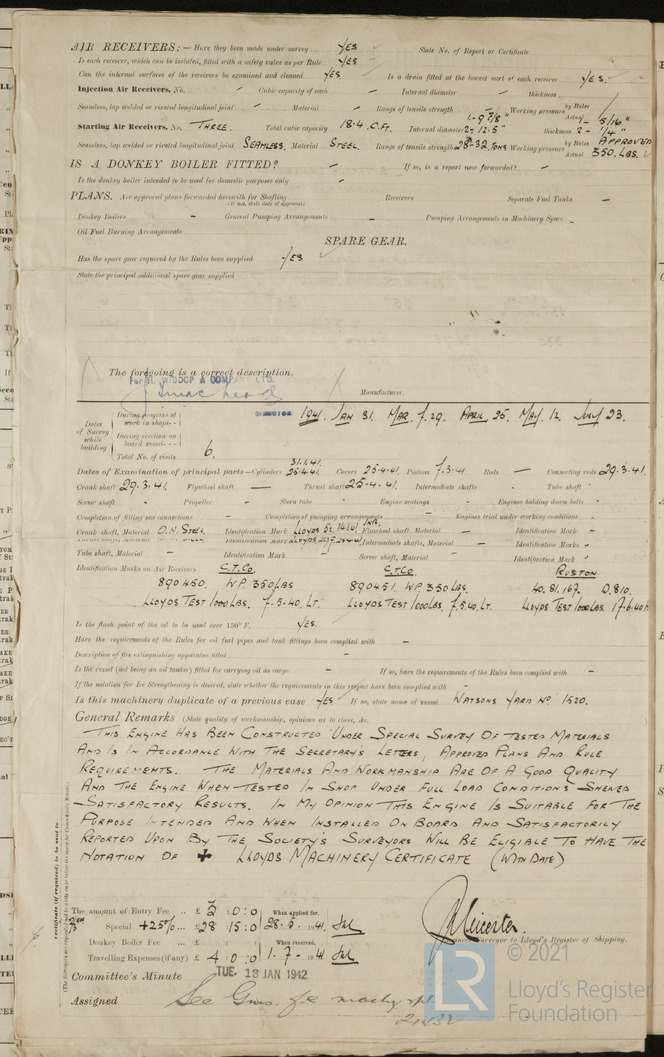 AIR RECEIVERS:— Have they been made under survey YES State No. of Report or Certificate
Is each receiver, which can be isolated, fitted with a safety valve as per Rule YES
Can the internal surfaces of the receivers be examined and cleaned YES Is a drain fitted at the lowest part of each receiver YES.
Injection Air Receivers, No. Cubic capacity of each Internal diameter thickness
Seamless, lap welded or riveted longitudinal joint Material Range of tensile strength Working pressure by Rules Actual
Starting Air Receivers, No. THREE. Total cubic capacity 18.4 C.FT. Internal diameter 1-9 7/8" 2-12.5" thickness 1- 5/16" 2- 1/4"
Seamless, lap welded or riveted longitudinal joint SEAMLESS. Material STEEL. Range of tensile strength 28-32 TONS Working pressure by Rules APPROVED Actual 350. LBS.
IS A DONKEY BOILER FITTED? If so, is a report now forwarded?
Is the donkey boiler intended to be used for domestic purposes only
PLANS. Are approved plans forwarded herewith for Shafting Receivers Separate Fuel Tanks
(If not, state date of approval)
Donkey Boilers General Pumping Arrangements Pumping Arrangements in Machinery Space
Oil Fuel Burning Arrangements
SPARE GEAR.
Has the spare gear required by the Rules been supplied YES
State the principal additional spare gear supplied
The foregoing is a correct description.
For H. WIDDOP & COMPANY LTD.
DIRECTOR Manufacturer.
Dates of Survey while building
During progress of work in shops - - 1941. JAN 31. MAR. 7. 29. APRIL, 25. MAY. 12. JULY 23.
During erection on board vessel - - -
Total No. of visits 6.
Dates of Examination of principal parts—Cylinders 31.1.41. 25.4.41. Covers 25.4.41. Pistons 7.3.41 Rods — Connecting rods 29.3.41.
Crank shaft 29.3.41. Flywheel shaft — Thrust shaft 25.4.41. Intermediate shafts - Tube shaft -
Screw shaft Propeller Stern tube Engine seatings Engines holding down bolts
Completion of fitting sea connections Completion of pumping arrangements Engines tried under working conditions
Crank shaft, Material O.H. STEEL Identification Mark Flywheel shaft, Material Identification Mark
Intermediate shafts, Material Identification Marks
Tube shaft, Material Identification Mark Screw shaft, Material Identification Mark
Identification Marks on Air Receivers C.T.Co. C.T.Co. RUSTON
890450. WP. 350 LBS 890451. WP. 350 LBS. 40.81.167. D.810.
LLOYDS TEST 1000 LBS. 7.5.40. LT. LLOYDS TEST 1000 LBS. 7.5.40. LT. LLOYDS TEST 1000 LBS. 17.6.40.
Is the flash point of the oil to be used over 150° F. YES.
Have the requirements of the Rules for oil fuel pipes and tank fittings been complied with
Description of fire extinguishing apparatus fitted
Is the vessel (not being an oil tanker) fitted for carrying oil as cargo If so, have the requirements of the Rules been complied with
If the notation for Ice Strengthening is desired, state whether the requirements in this respect have been complied with
Is this machinery duplicate of a previous case YES If so, state name of vessel WATSONS YARD No 1520.
General Remarks (State quality of workmanship, opinions as to class, &c.
THIS ENGINE HAS BEEN CONSTRUCTED UNDER SPECIAL SURVEY OF TESTED MATERIALS
AND IS IN ACCORDANCE WITH THE SECRETARY'S LETTERS, APPROVED PLANS AND RULE
REQUIREMENTS. THE MATERIALS AND WORKMANSHIP ARE OF A GOOD QUALITY
AND THE ENGINE WHEN TESTED IN SHOP UNDER FULL LOAD CONDITIONS SHEWED
SATISFACTORY RESULTS. IN MY OPINION THIS ENGINE IS SUITABLE FOR THE
PURPOSE INTENDED AND WHEN INSTALLED ON BOARD AND SATISFACTORILY
REPORTED UPON BY THE SOCIETY'S SURVEYORS WILL BE ELIGIBLE TO HAVE THE
NOTATION OF ✠ LLOYDS MACHINERY CERTIFICATE (WITH DATE)
The amount of Entry Fee .. £ 2 : 0 : 0 When applied for,
Special +25% ... £ 28 : 15 : 0 1941
Donkey Boiler Fee ... £ When received,
Travelling Expenses (if any) £ 4 : 0 : 0 1.7.1941
Surveyor to Lloyd's Register of Shipping.
Committee's Minute TUE. 13 JAN 1942
Assigned See
© 2021
LR
Lloyd's Register
Foundation